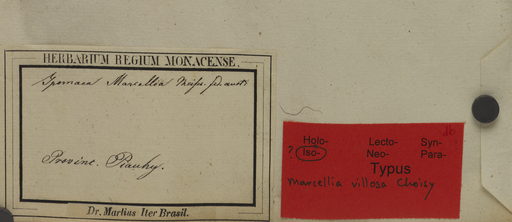 HERBARIUM REGIUM MONACENSE.
Ipomaea Marcellia Meisn. fid. auct!
Provinc. Piauhy.
Dr. Martius Iter Brasil.
Holo- Lecto- Syn-
? Iso- Neo- Para-
Typus
Marcellia villosa Choisy